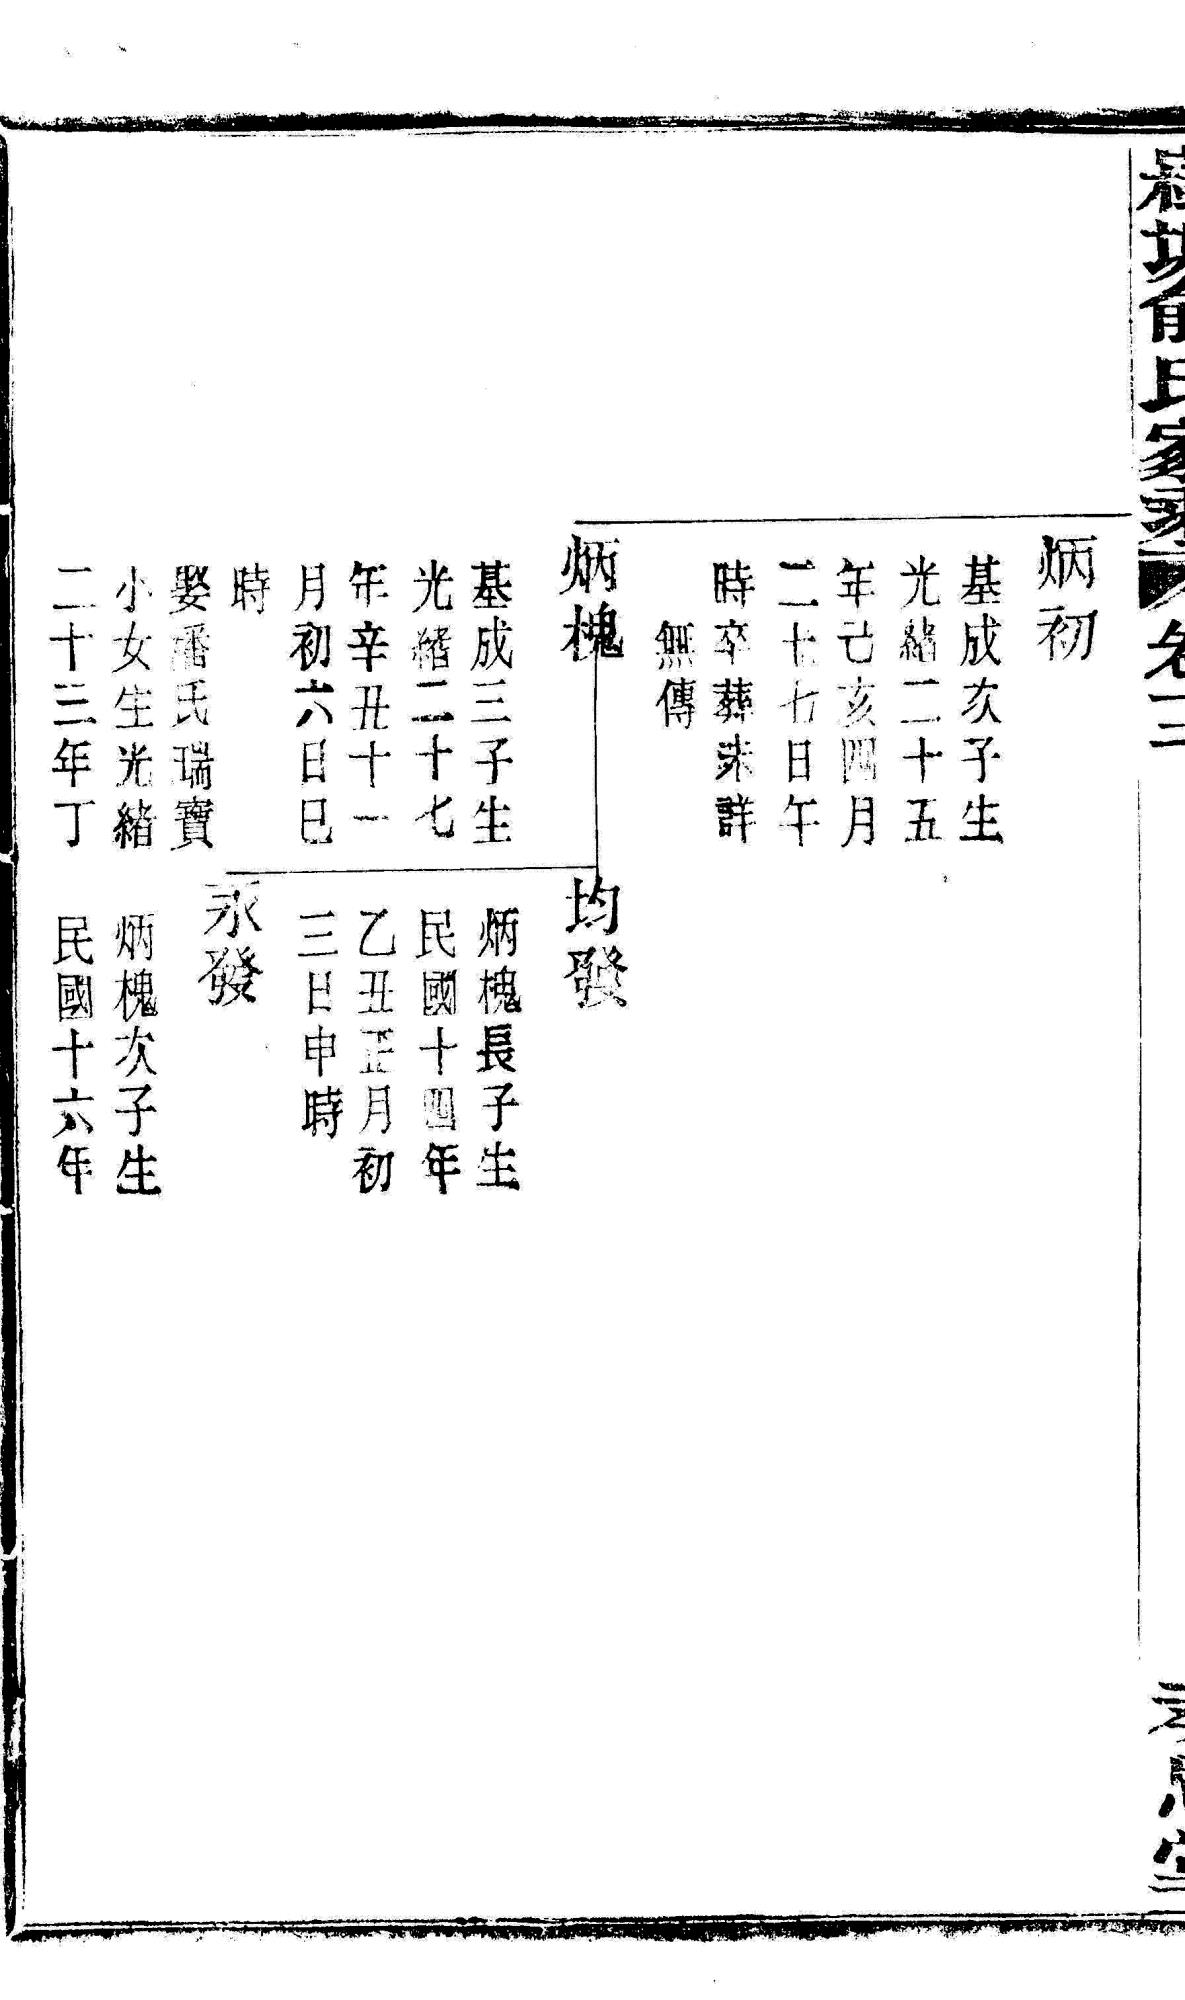 俞氏家乘 卷三
炳初
基成次子生
光緒二十五
年己亥四月
二十七日午
時卒葬未詳
無傳
炳槐
基成三子生
光緒二十七
年辛丑十一
月初六日巳
時
娶潘氏瑞寶
小女生光緒
二十三年丁
均發
炳槐長子生
民國十四年
乙丑正月初
三日申時
永發
炳槐次子生
民國十六年